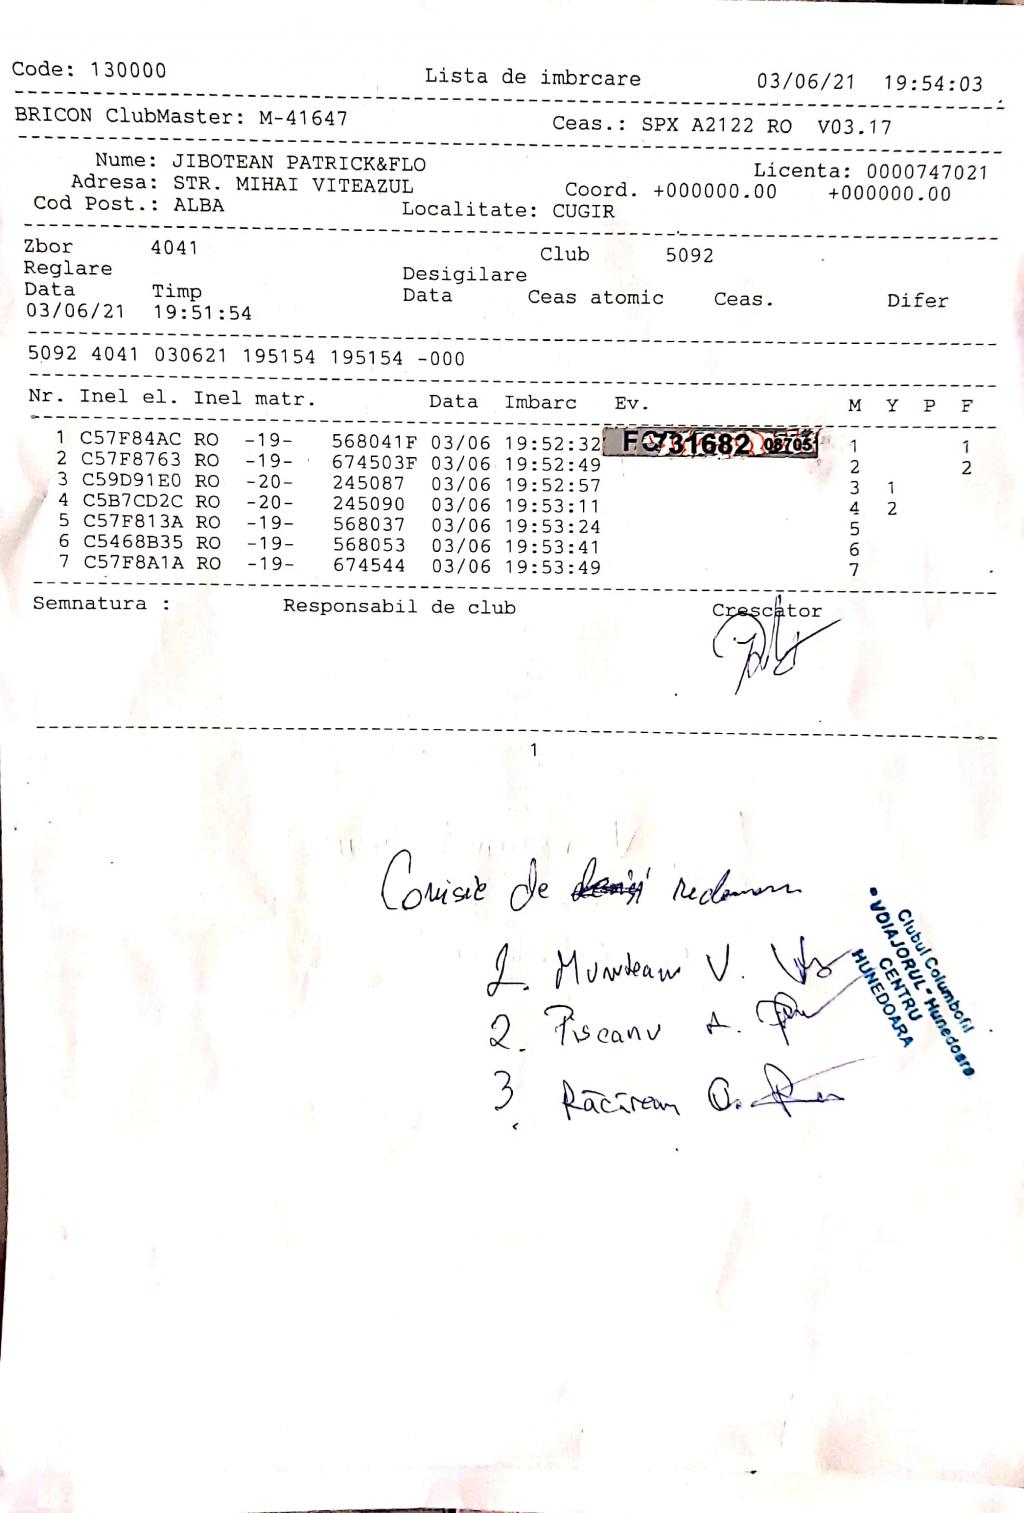 Code: 130000 Lista de imbrcare 03/06/21 19:54:03
BRICON ClubMaster: M-41647 Ceas.: SPX A2122 RO V03.17
Nume: JIBOTEAN PATRICK&FLO Licenta: 0000747021
Adresa: STR. MIHAI VITEAZUL Coord. +000000.00 +000000.00
Cod Post.: ALBA Localitate: CUGIR
Zbor 4041 Club 5092
Reglare Desigilare
Data Timp Data Ceas atomic Ceas. Difer
03/06/21 19:51:54
5092 4041 030621 195154 195154 -000
Nr. Inel el. Inel matr. Data Imbarc Ev. M Y P F
1 C57F84AC RO -19- 568041F 03/06 19:52:32 731682 08705 1 1
2 C57F8763 RO -19- 674503F 03/06 19:52:49 2 2
3 C59D91E0 RO -20- 245087 03/06 19:52:57 3 1
4 C5B7CD2C RO -20- 245090 03/06 19:53:11 4 2
5 C57F813A RO -19- 568037 03/06 19:53:24 5
6 C5468B35 RO -19- 568053 03/06 19:53:41 6
7 C57F8A1A RO -19- 674544 03/06 19:53:49 7
Semnatura : Responsabil de club Crescator
1
Comisie de
1. Munteanu V.
2. Piscanu A.
3 Răcirean O.
Clubul Columbofil
"VOIAJORUL" Hunedoara
CENTRU
HUNEDOARA